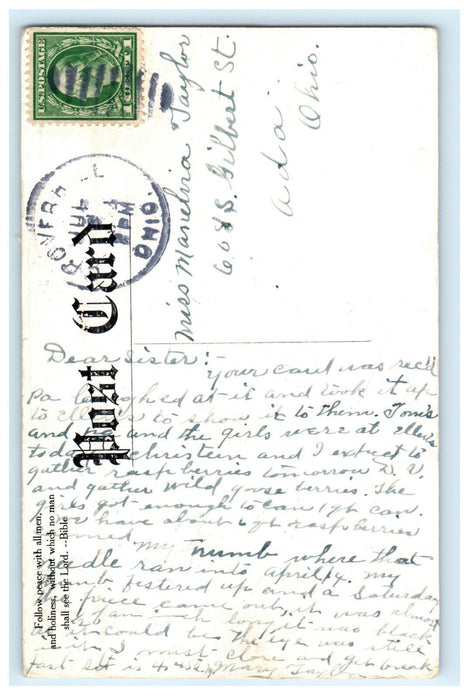 U.S. POSTAGE
1 CENT 1
ROVER HILL
JUL
PM
OHIO.
Post Card
Miss Manelvia Taylor
608 S. Gilbert St.
Ada
Ohio.
Follow peace with all men,
and holiness, without which no man
shall see the Lord.--Bible
Dear Sister:-
Your card was rec'd
Pa laughed at it and took it up
to to show it to them. Toms
and and the girls were at Ellen's
today. Christein and I expect to
gather raspberries tomorrow D. V.
and gather wild goose berries. The
girls got enough to can 1 qt can.
have about 6 qt raspberries
canned.
My thumb where that
needle ran into April 4. my
thumb festered up and a Saturday
piece came out, it was almost
an inch long it was black
as it could be the eye was still
in it. I must close and get breakfast
it is 4:45. Mary